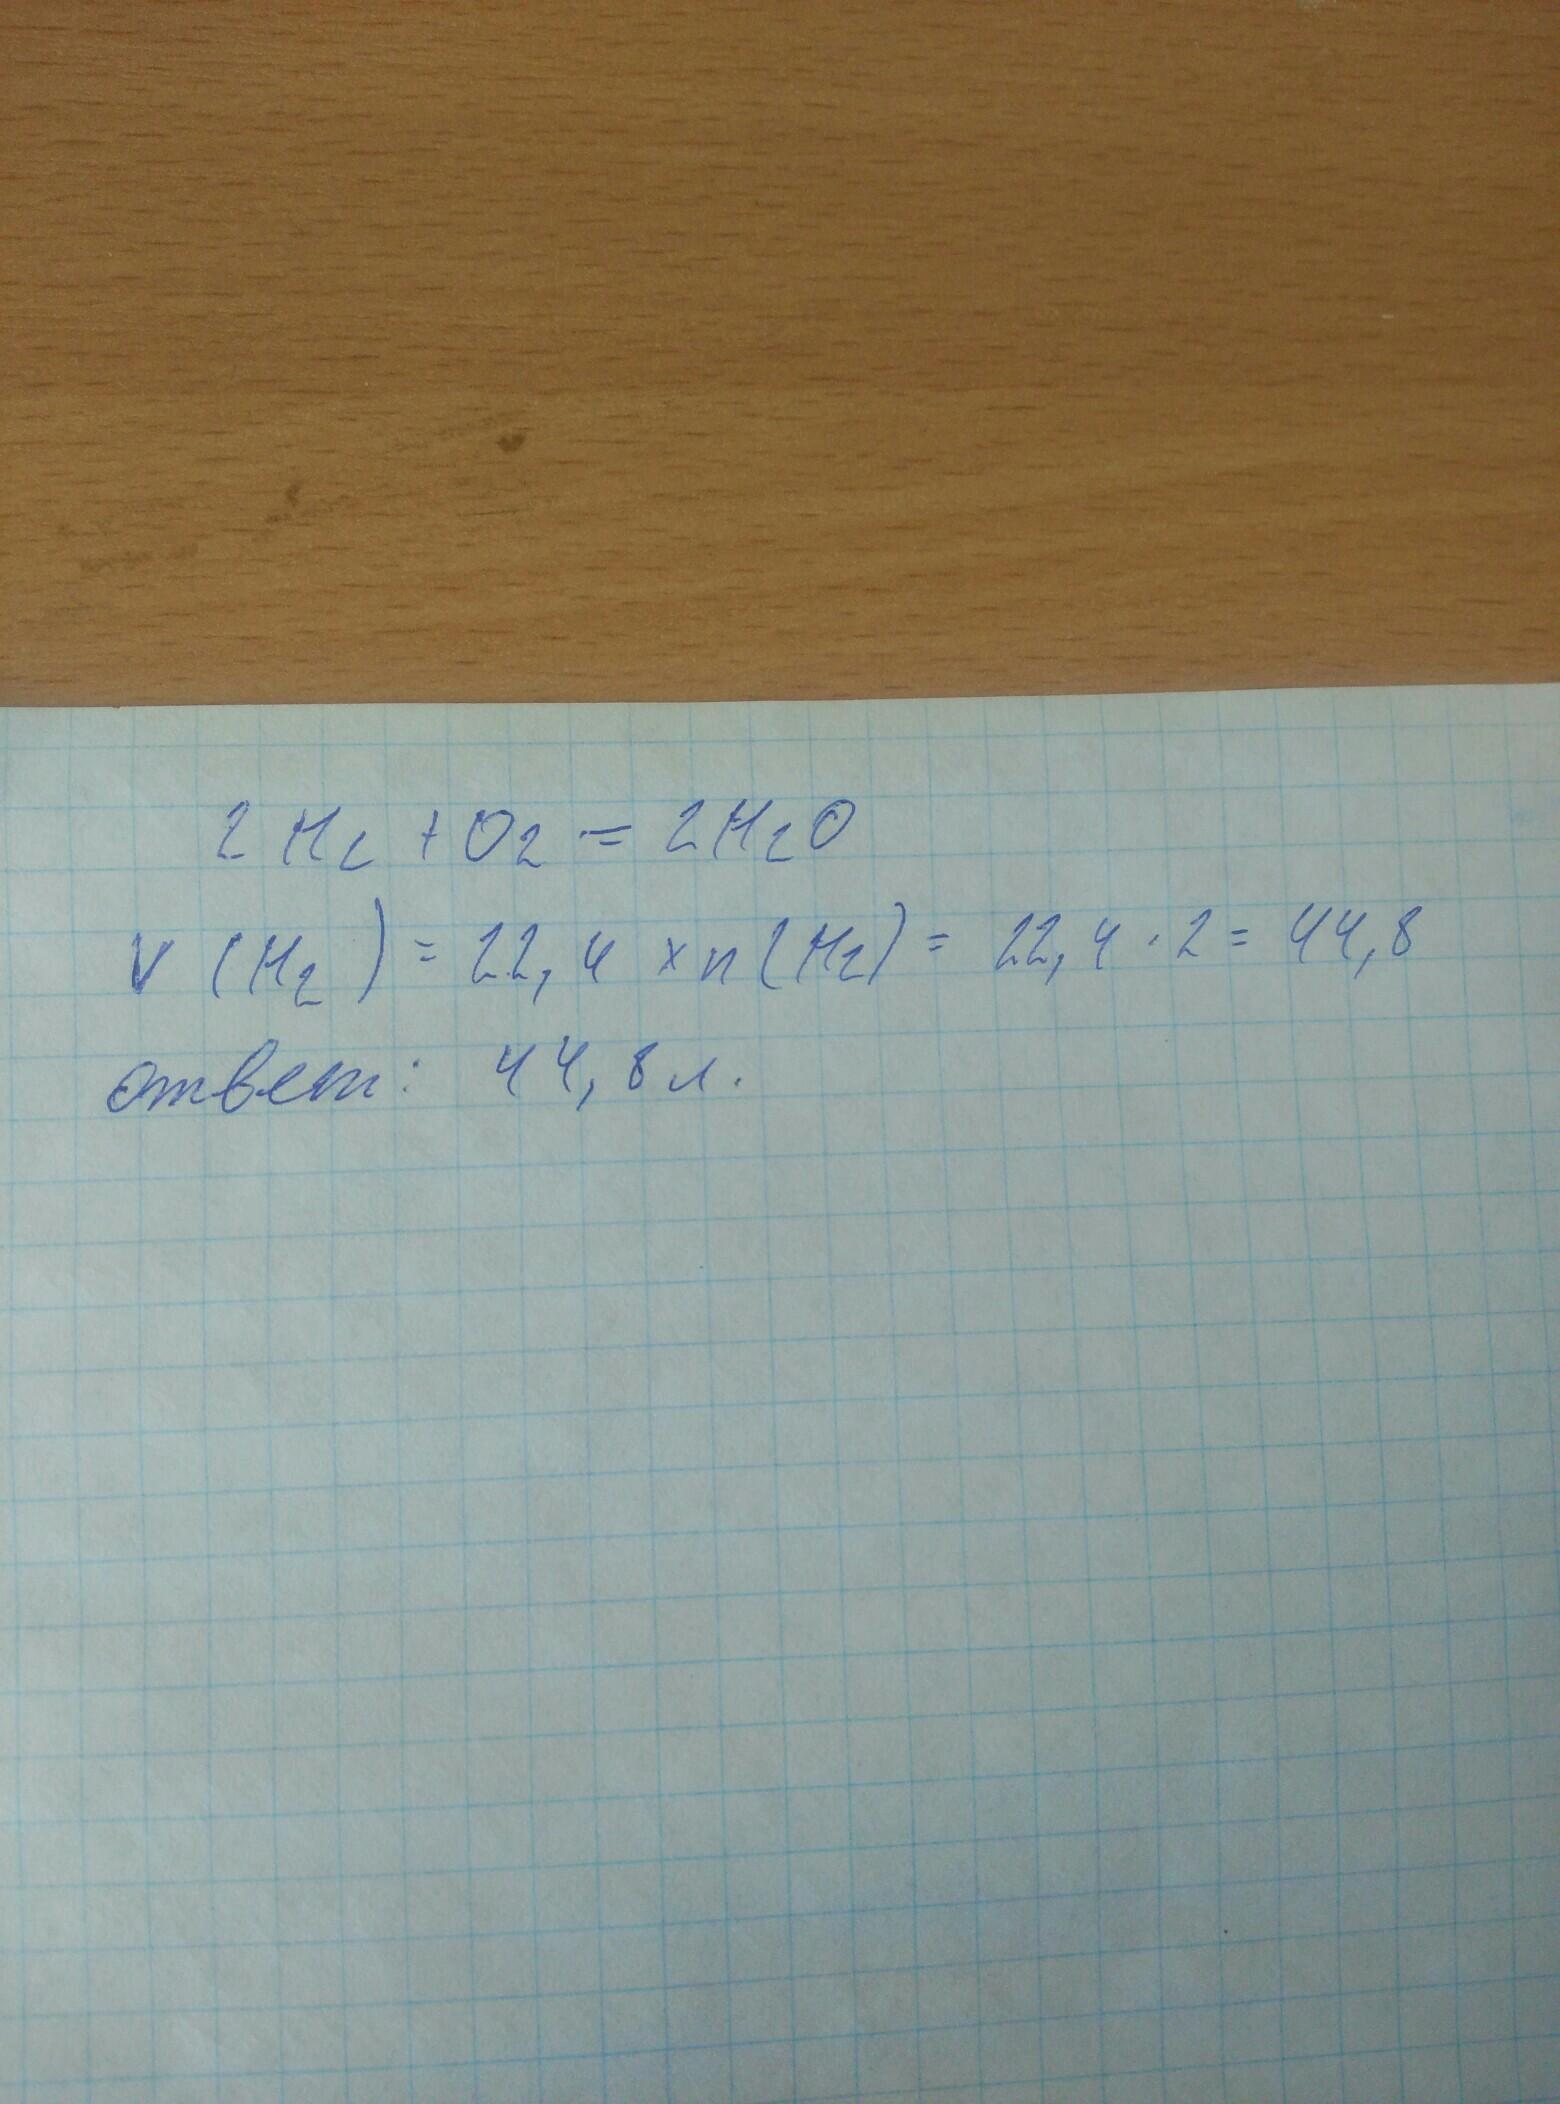 2H2 + O2 = 2H2O
V (H2) = 22,4 × n(H2) = 22,4 · 2 = 44,8
ответ: 44,8 л.